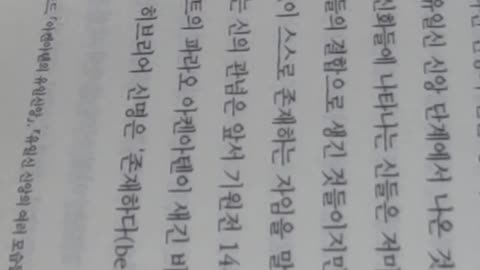 유일신 신앙 단계에서 나온 것
신화들에 나타나는 신들은 저마
들의 결합으로 생긴 것들이지만
이 스스로 존재하는 자임을 말
는 신의 관념은 앞서 기원전 14
트의 파라오 아켄아텐이 새긴 비
히브리어 신명은 '존재하다(be
드, 「아켄아텐의 유일신앙」, 『유일신 신앙의 여러 모습